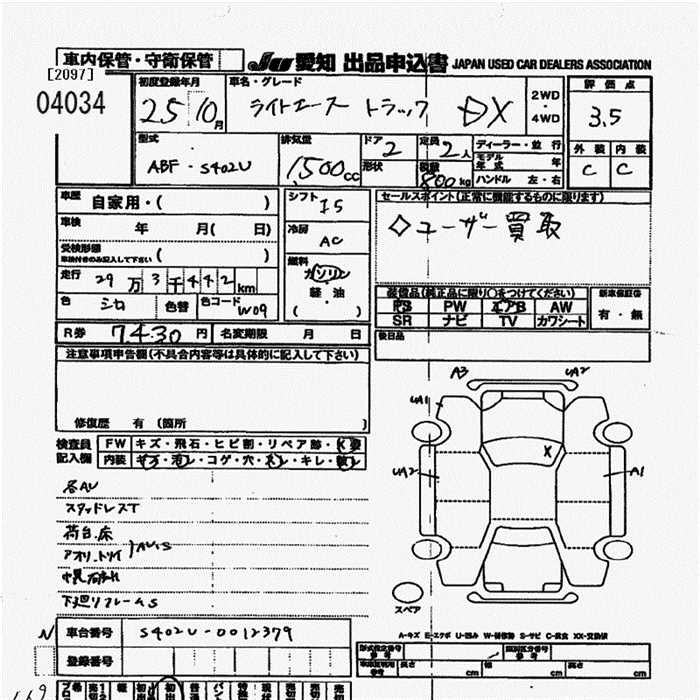 車内保管・守衛保管
JU 愛知 出品申込書 JAPAN USED CAR DEALERS ASSOCIATION
[2097]
04034
初度登録年月 25 10月
車名・グレード ライトエース トラック DX
2WD・4WD
評価点 3.5
型式 ABF・S402U
排気量 1,500cc
ドア 2
形状
定員 2人
積載 800kg
ディーラー・並行
モデル年式 年
ハンドル 左・右
外装 内装
C C
車歴 自家用・( )
シフト I5
セールスポイント(正常に機能するものに限ります)
◇ユーザー買取
車検 年 月( 日)
冷房 AC
受検形態
車検付きのみ記入して下さい ( )
燃料 ガソリン
軽・油
( )
走行 29万3千442km
色 シロ 色替 色コード W09
装備品(純正品に限り○をつけてください)
PS PW エアB AW
SR ナビ TV カワシート
新車保証書
有・無
R券 7430円 名変期限 月 日
後日品
注意事項申告欄(不具合内容等は具体的に記入して下さい)
修復歴 有 (箇所 )
検査員記入欄
FW キズ・飛石・ヒビ割・リペア跡・X要
内装 キズ・汚レ・コゲ・穴・スレ・キレ・破レ
各AU
スタッドレスT
荷台.床
アオリ.トリイ AU.S
下廻リフレームS
A3 UA2
UA1
X
UA2 A1
スペア
A-キズ E-エクボ U-凹み W-補修跡 S-サビ C-腐食 XX-交換済
車台番号 S402U-0012379
登録番号
型式指定番号 類別区分番号
長さ cm 幅 cm 高さ cm